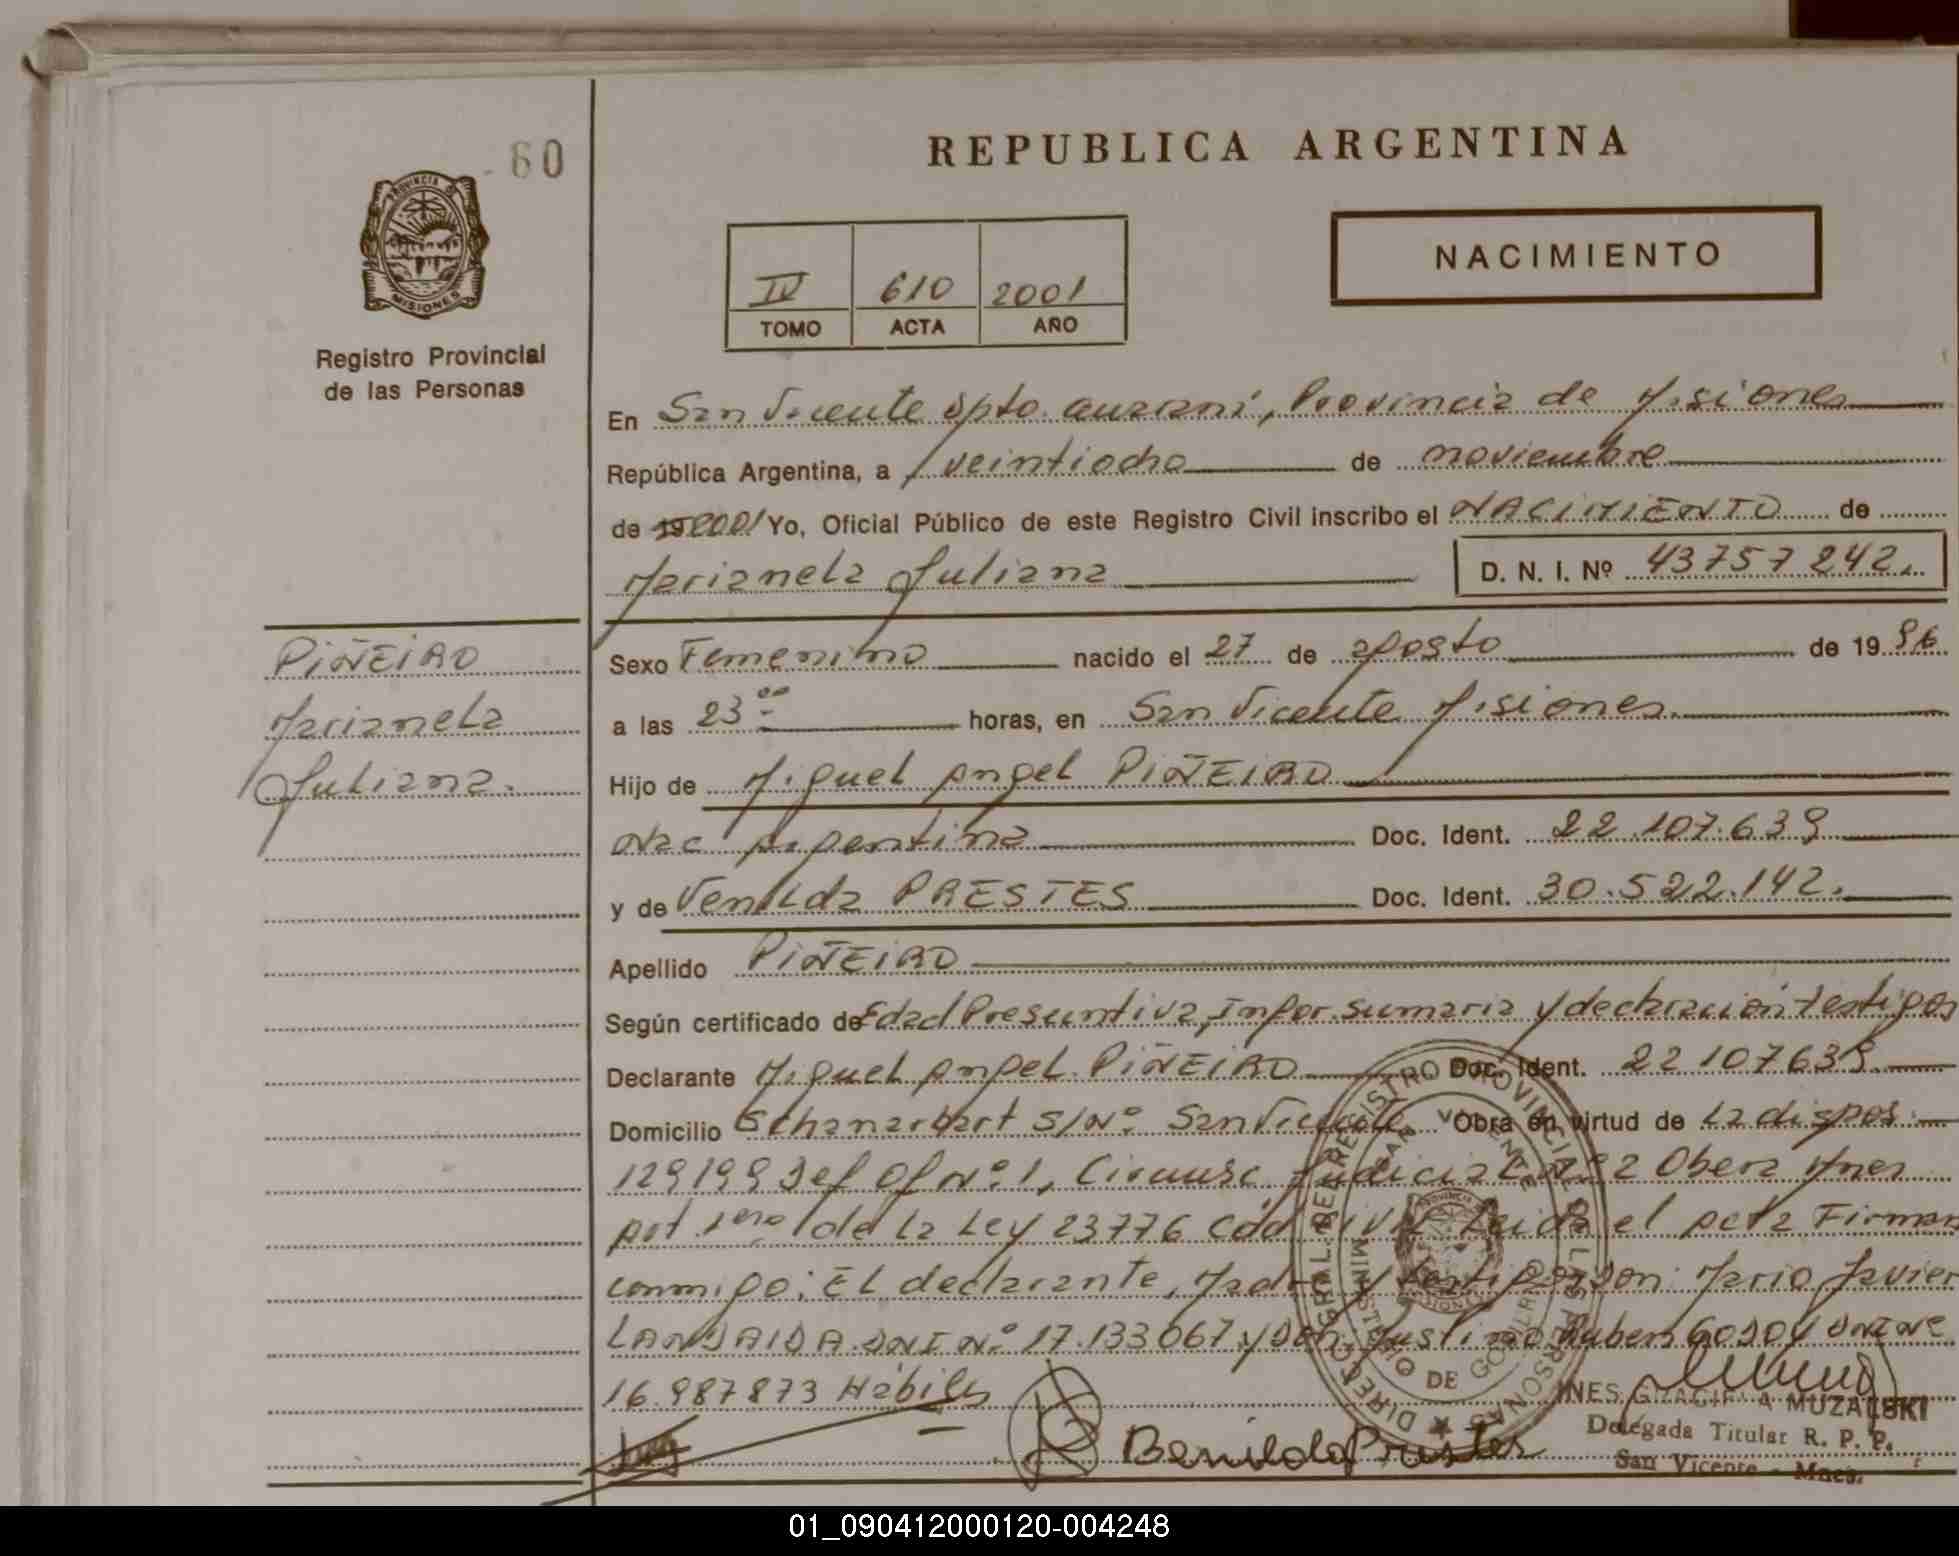 60
REPUBLICA ARGENTINA
PROVINCIA DE
MISIONES
Registro Provincial
de las Personas
IV 610 2001
TOMO ACTA AÑO
NACIMIENTO
En San Vicente Dpto. Guarani, Provincia de Misiones
República Argentina, a veintiocho de noviembre
de 19 2001 Yo, Oficial Público de este Registro Civil inscribo el NACIMIENTO de
Marianela Juliana D. N. I. Nº 43757242.
PIÑEIRO
Marianela
Juliana.
Sexo Femenino nacido el 27 de agosto de 1996
a las 23 00 horas, en San Vicente Misiones.
Hijo de Miguel Angel PIÑEIRO
Nac Argentina Doc. Ident. 22.107.639
y de Venilda PRESTES Doc. Ident. 30.522.142.
Apellido PIÑEIRO
Según certificado de Edad Presuntiva, Infor. sumaria y declaración testigos
Declarante Miguel Angel PIÑEIRO Doc. Ident. 22107639.
Domicilio S/Nº San Vicente Obra en virtud de La dispos.
129199 Def Of Nº 1, Circunsc Judicial Nº 2 Obera Mnes
art 1ero de La Ley 23776 Cód Civil Leida el acta Firman
conmigo: El declarante, Madre y testigos son: Mario Javier
LANDAIDA DNI Nº 17.133067 y Don Justino Ruben GODOY DNI Nº
16.987873 Hábiles
Benilda Prestes
INES GRACIELA MUZALSKI
Delegada Titular R. P. P.
San Vicente - Mnes.
DIRECC. GRAL. DEL REGISTRO PROVINCIAL DE LAS PERSONAS
SAN VICENTE
MINIST. DE GOBIERNO
01_090412000120-004248